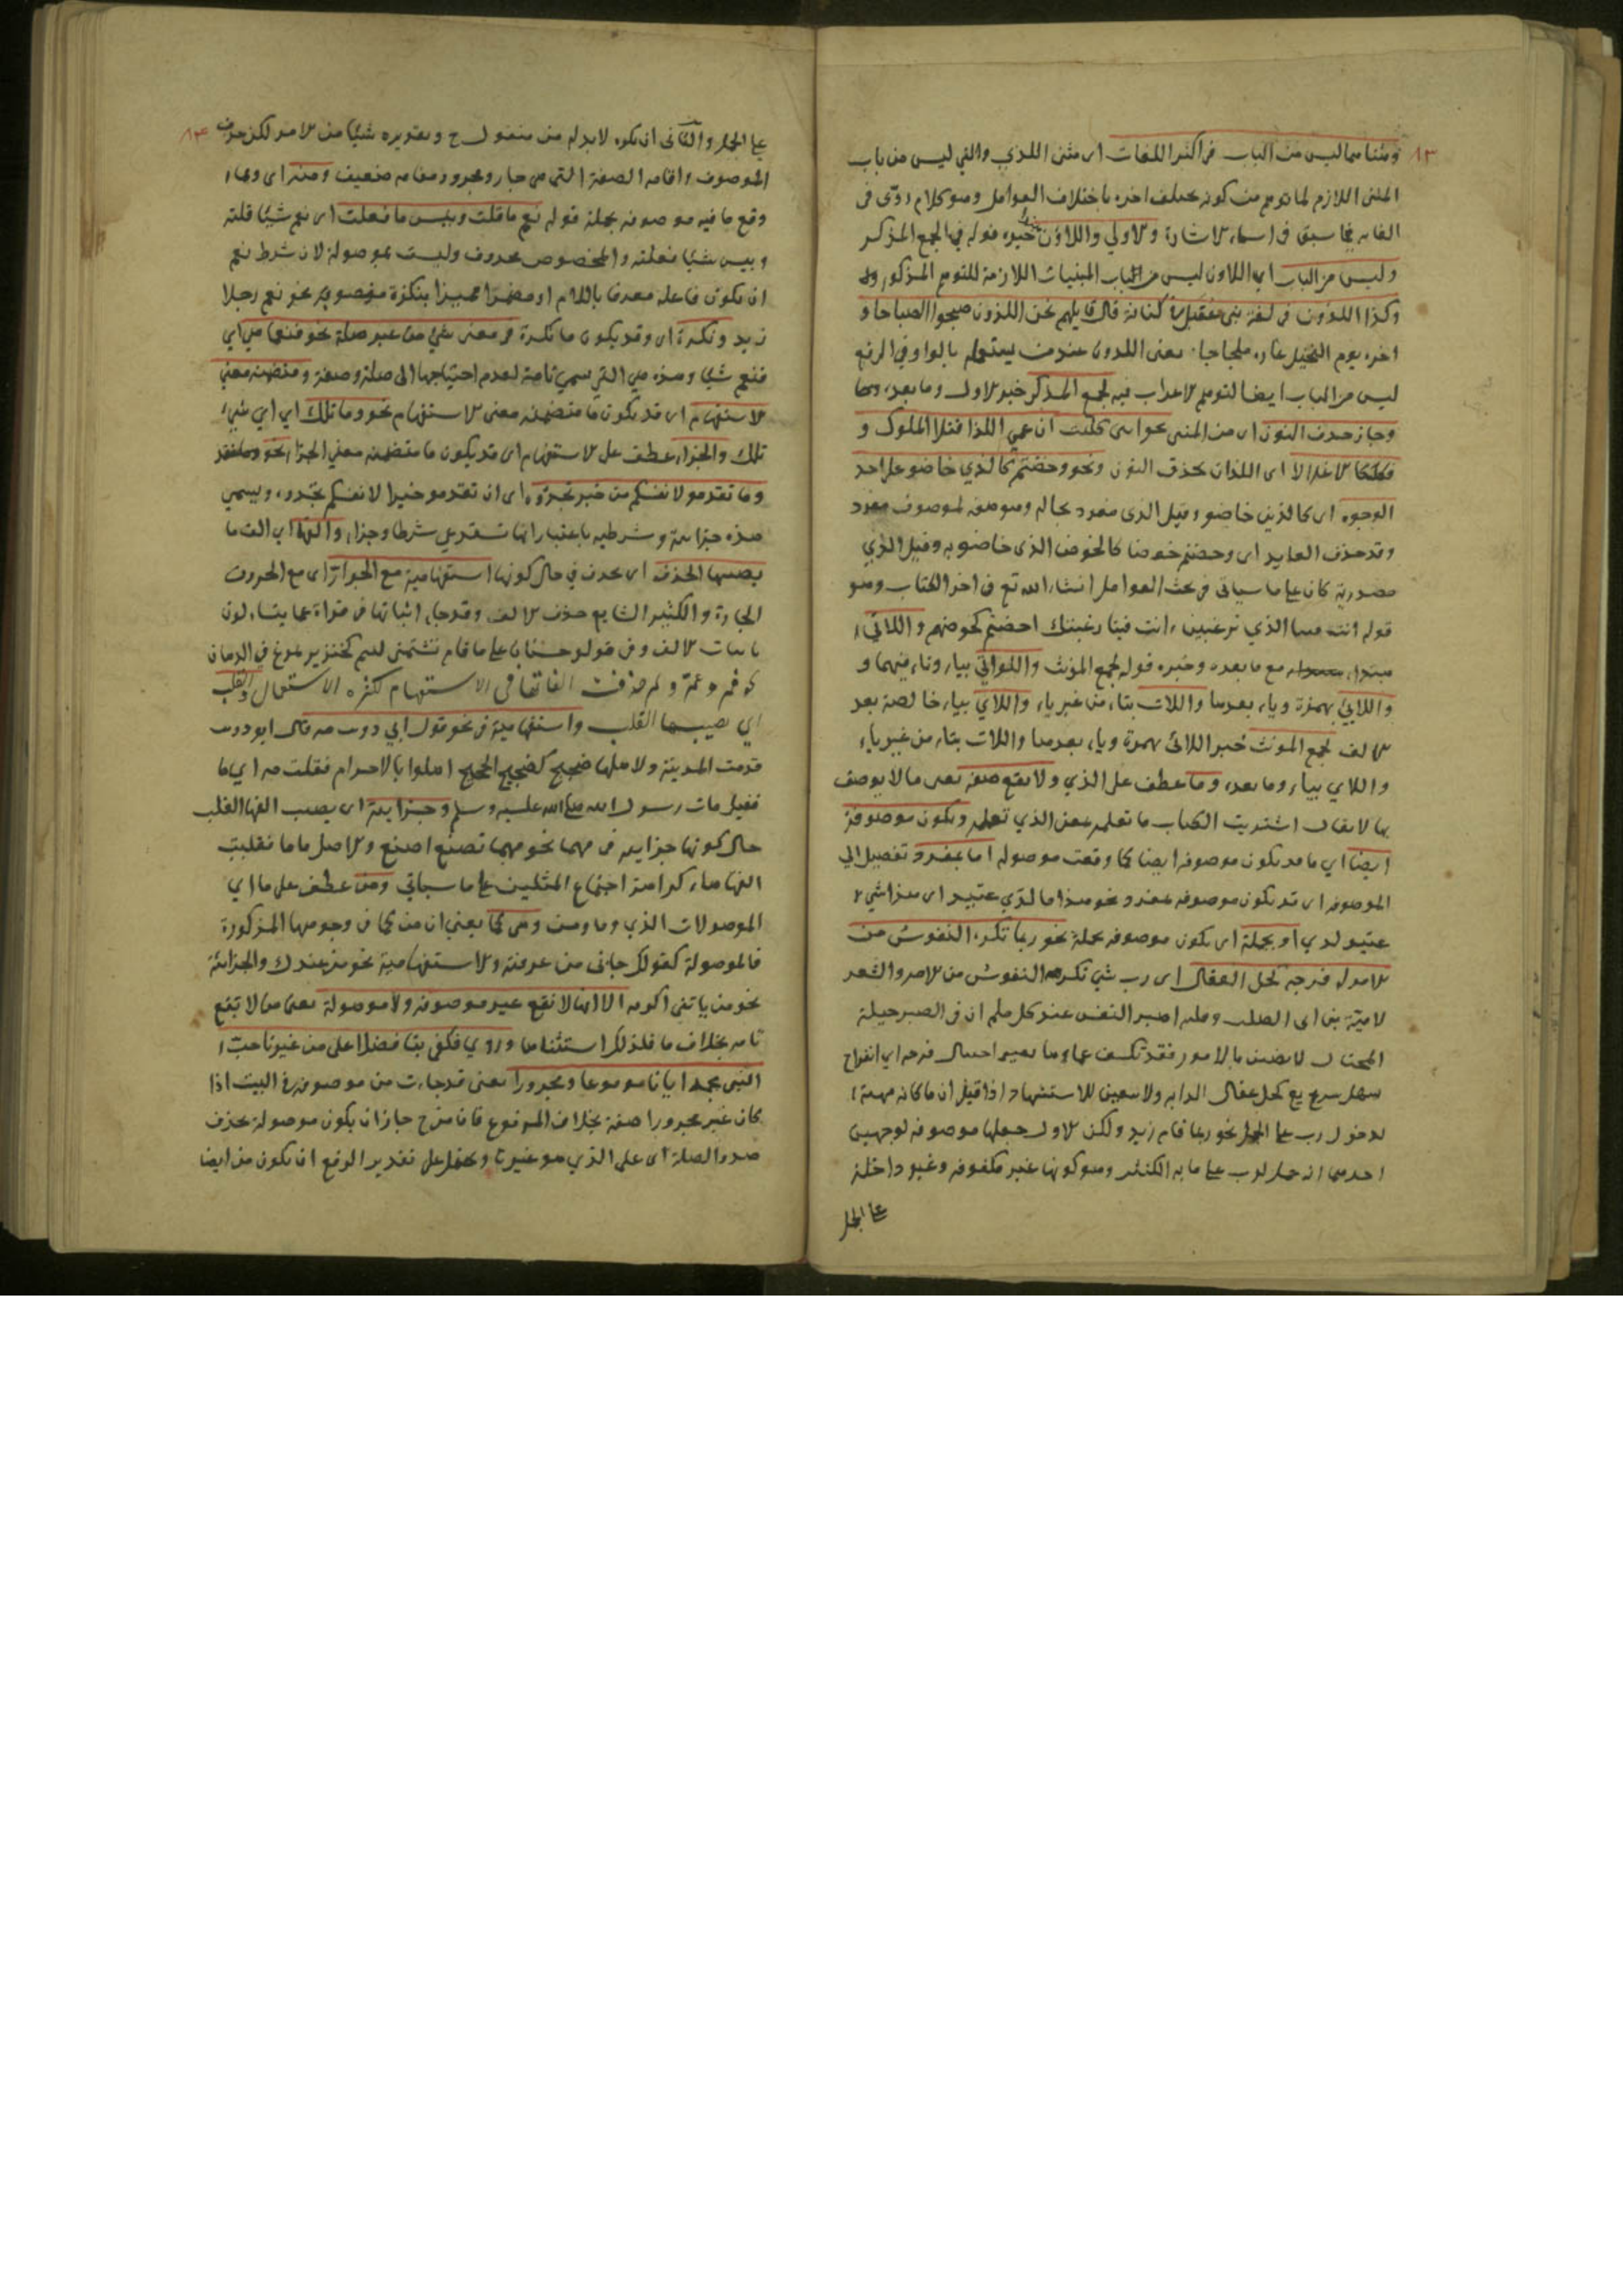 ٨٣
ومثناهما ليس من الباب في اكثر اللغات اى مثنى اللذي والتي ليس من باب
المبنى اللازم لما توهم من كونه يختلف اخره باختلاف العوامل وهو كلام ردّى فى
الغاية لما سبق فى اسماء الاشارة والاولي واللاؤن خبره قوله في الجمع المذكر
وليس من الباب اي اللاون ليس من الباب المبنيات اللازمة للتوهم المذكور
وكذا اللذون فى لغة بنى عقيل كنانة قال قايلهم نحن اللذون صبحوا الصباحا و
اخره يوم النخيل غارة ملحاحا يعنى اللذون عندهم يستعمل بالواو في الرفع
ليس من الباب ايضا لتوهم الاعراب فيه لجمع المذكر خبر الاول وما بعده
وجاز حذف النون اى من المثنى نحو ابنى كليب ان عمي اللذا قتلا الملوك و
فككا الاغلالا اى اللذان بحذف النون ونحو وخضتم كالذي خاضوا على احد
الوجوه اى كالذين خاضو وقيل الذى مفرد بحاله وهو صفة لموصوف مفرد
وقد حذف العايد اى وخضتم خوضا كالخوض الذى خاضو به وقيل الذي
مصدرية كان على ما سياتى في بحث العوامل انشاء الله تع فى اخر الكتاب وهو
قوله انت الذي ترغبين انت فينا رغبتك اخضتم كخوضهم واللائي
مبتداء مع ما بعده وخبره قوله لجمع المؤنث واللواتي بياء وتاء فيهما و
واللائي بهمزة وياء بعدها واللات بتاء من غير ياء واللاي بياء خالصة بعد
الالف لجمع المؤنث خبر اللائى بهمزة وياء بعدها واللات بتاء من غير ياء
واللاي بياء وما بعده وما عطف على الذي ولا تقع صفة يعنى ما لا يوصف
بها لا يقال اشتريت الكتاب ما تعلم بمعنى الذي تعلم وتكون موصوفة
ايضا اي ما قد تكون موصوفة ايضا كما وقعت موصولة اما بمفرد تفصيل الي
الموصوفة اى قد تكون موصوفة بمفرد ونحو هذا ما لدَي عتيد اى هذا شيء
عتيد لدي او بجملة اى تكون موصوفة بجملة نحو ربما تكره النفوس من
الامر له فرجة كحل العقال اى رب شي تكرهه النفوس من الامر والشعر
لامية بن ابى الصلت وقبله اصبر النفس عند كل ملم ان فى الصبر حيلة
المحتال لا تضيقن بالامور فقد تكشف غماؤها بغير احتيال فرجة اي انفراج
سهل سريع كحل عقال الدابة ولا تتعين للاستشهاد اذا قيل ان ما كافة مهيئة
لدخول رب على الجمل نحو ربما قام زيد ولكن الاول جعلها موصوفة لوجهين
احدهما انه حمل لرب على ما به الكثير وهو كونها غير مكفوفة وغير داخلة
على الجمل
٨٤
على الجمل والثانى ان تكره لابد له من مفعول ح وتقديره شيئا من الامر لكن حذف
الموصوف واقامة الصفة التى هي جار ومجرور مقامه ضعيف ومنه اى ومما
وقع ما فيه موصوفة بجملة قوله نعم ما قلت وبئس ما فعلت اى نعم شيئا قلته
وبيس شيئا فعلته والمخصوص محذوف وليست بموصولة لان شرط نعم
ان يكون فاعله معرفا باللام او مضمرا مميزا بنكرة منصوبة نحو نعم رجلا
زيد ونكرة اى وقد يكون ما نكرة في معنى شيء من غير صلة نحو فنعما هي اي
فنعم شيئا وهذه هي التي تسمي تامة لعدم احتياجها الى صلة وصفة ومتضمنة معنى
الاستفهام اى قد يكون ما متضمنة معنى الاستفهام نحو وما تلك اي اي شيء
تلك والجزاء عطف على الاستفهام اى قد يكون ما متضمنه معني الجزاء نحو
وما تقدموا لانفسكم من خير تجدوه اى ان تقدمو خيرا لانفسكم تجدوه ويسمى
هذه جزائية وشرطيه باعتبار انها تستدعي شرطا وجزاء والفها اي الف ما
يصيبها الحذف اى يحذف في حال كونها استفهامية مع الجوار اى مع الحروف
الجارة والكثير الشايع حذف الالف وقد جاء اثباتها فى قراة عما يتساءلون
باثبات الالف وفى قول حسان على ما قام تشتمنى لئيم كخنزير تمرغ في الدمان
فيم وعم ولم حذفت الفاتها فى الاستفهام لكثرة الاستعمال والقلب
اي يصيبها القلب واستفهامية فى نحو قول ابي ذويب مه قال ابو ذويب
قدمت المدينة ولاهلها ضجيج كضجيج الحجيج اهلوا بالاحرام فقلت مه اي ما
فقيل مات رسول الله صلى الله عليه وسلم وجزايية اى يصيب الفها القلب
حال كونها جزاييه فى مهما نحو مهما تصنع اصنع والاصل ما ما فقلبت
الفها هاء كراهة اجتماع المثلين على ما سياتي ومن عطف على ما اي
الموصولات الذي وما ومن وهى كما يعني ان من كما في وجوهها المذكورة
فالموصولة كقولك جانى من عرفته والاستفهامية نحو من عندك والجزائية
نحو من ياتني اكرمه الا انها لا تقع غير موصوفة ولا موصولة يعنى من لا تقع
تامة بخلاف ما فلذلك استثناها وروي فكفى بنا فضلا على من غيرنا حبّ
النبي محمد ايانا مرفوعا ومجرورا يعنى قد جاءت من موصوفة فى البيت اذا
كان غير مجرورا صفة بخلاف المرفوع فان من ح جاز ان يكون موصولة بحذف
صدر الصلة اى على الذي هو غيرنا ويحتمل على تقدير الرفع ان يكون من ايضا